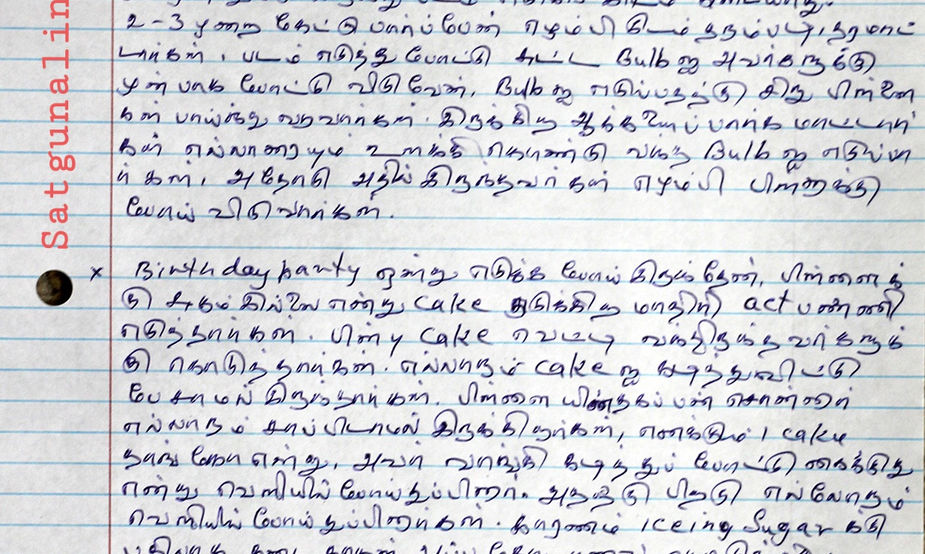 2-3 முறை கேட்டு பார்ப்பேன் எழும்பி இடம் தரும்படி, தரமாட்
டார்கள். படம் எடுத்து போட்டு சுட்ட Bulb ஐ அவர்களுக்கு
முன்பாக போட்டு விடுவேன். Bulb ஐ எடுப்பதற்கு சிறு பிள்ளை
கள் பாய்ந்து வருவார்கள். இருக்கிற ஆக்களைப் பார்க்க மாட்டார்
கள் எல்லாரையும் உளக்கி கொண்டு வந்து Bulb ஐ எடுப்பா
ர்கள். அதோடு அதில் இருந்தவர்கள் எழும்பி பின்னுக்கு
போய் விடுவார்கள்.
x Birthday party ஒன்று எடுக்க போய் இருந்தேன். பிள்ளைக்
கு சுகம் இல்லை என்று cake கடிக்கிற மாதிரி act பண்ணி
எடுத்தார்கள். பின்பு cake வெட்டி வந்திருந்தவர்களுக்
கு கொடுத்தார்கள். எல்லாரும் cake ஐ கடித்துவிட்டு
பேசாமல் இருந்தார்கள். பிள்ளையின் தகப்பன் சொன்னார்
எல்லாரும் சாப்பிடாமல் இருக்கிறார்கள், எனக்கும் 1 cake
தாங்கோ என்று. அவர் வாங்கி கடித்துப் போட்டு கைக்குது
என்று வெளியில் போய் துப்பினார். அதற்கு பிறகு எல்லோரும்
வெளியில் போய் துப்பினார்கள். காரணம் iceing Sugar க்கு
Satgunalin